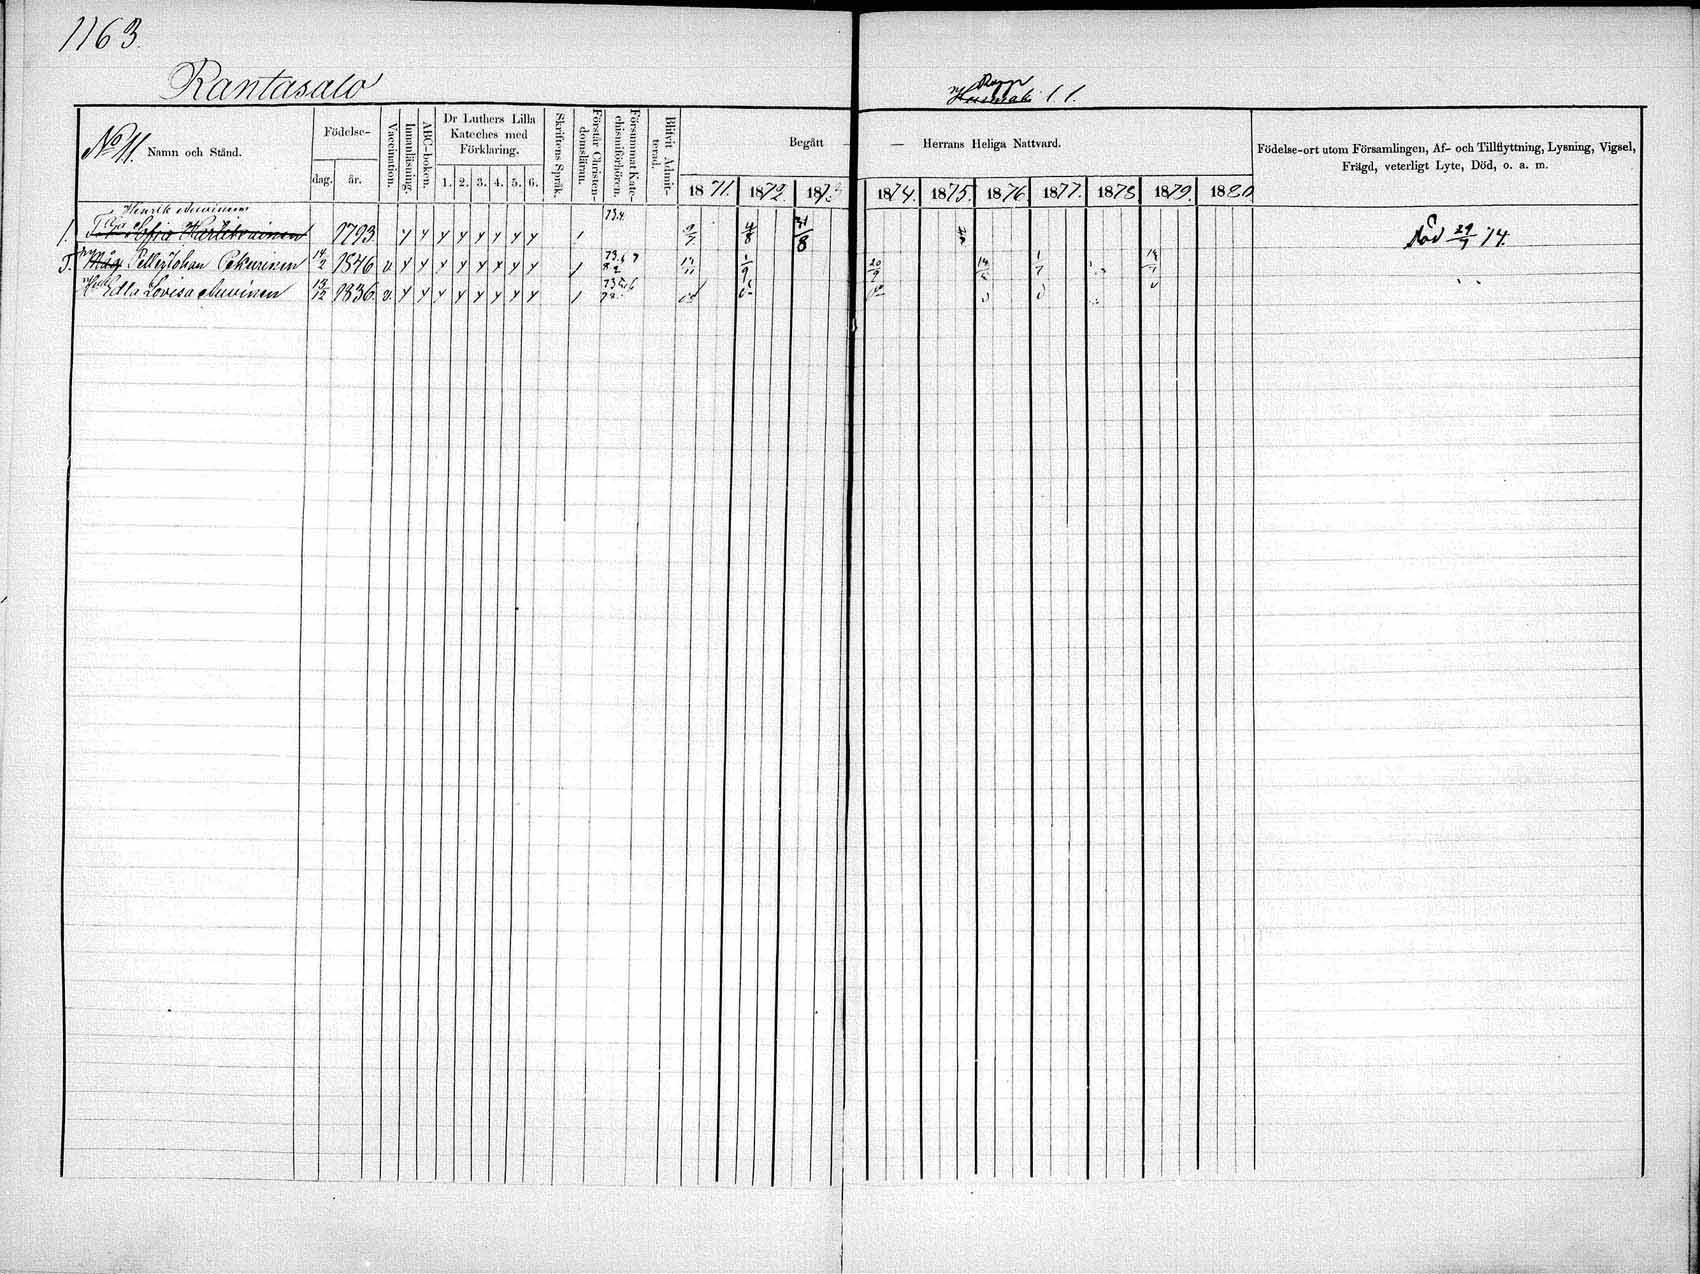 1163.
Rantasalo
11.
No 11. Namn och Stånd.
Födelse-
dag. år.
Vaccination.
Innanläsning.
ABC-boken.
Dr Luthers Lilla
Kateches med
Förklaring.
1. 2. 3. 4. 5. 6.
Skriftens Språk.
Förstår Christen-
domsläran.
Försummat Kate-
chismiförhören.
Blifvit Admit-
terad.
Begått — — Herrans Heliga Nattvard.
1871. 1872. 1873 1874. 1875. 1876. 1877. 1878 1879. 1880
Födelse-ort utom Församlingen, Af- och Tillflyttning, Lysning, Vigsel,
Frägd, veterligt Lyte, Död, o. a. m.
Henrik Auvinen
1. Sofia 1793 y y y y y y y y 73.4 4/8 31/8 död 29/7 74.
T. Måg Pelle Johan Pekurinen 1846 v y y y y y y y y 1/9 20/9
Edla Lovisa Auvinen 1836. v. y y y y y y y y